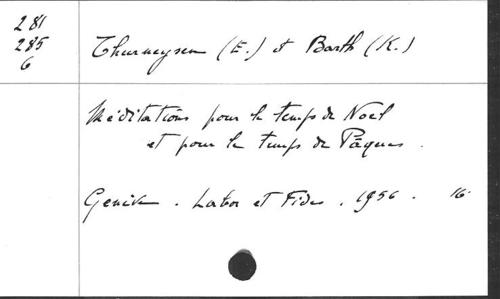 281
285
6
Thurneysen (E.) et Barth (K.)
Méditations pour le temps de Noël
et pour le temps de Pâques.
Genève. Labor et Fides. 1956. 16